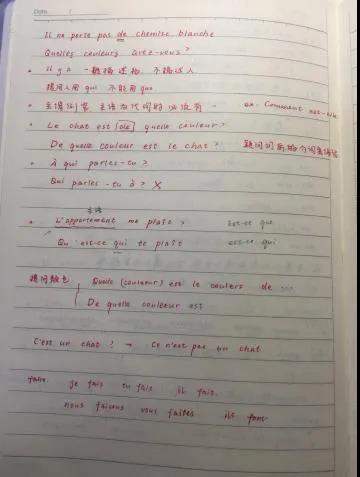 Date
Il ne porte pas de chemise blanche
Quelles couleurs avez-vous?
• il y a 一般描述物, 不描述人
提问人用 qui 不能用 que
• 主谓倒装 主语为代词时必须有 - ex. Comment est-elle
• Le chat est de quelle couleur?
De quelle couleur est le chat? 疑问词前的介词
• À qui parles-tu?
Qui parles-tu à? ✗
主语
• L'appartement me plaît > est-ce que
Qu'est-ce qui te plaît est-ce qui
提问颜色 Quelle (couleur) est le couleurs de
De quelle couleur est
C'est un chat? → Ce n'est pas un chat
faire. je fais tu fais il fait.
nous faisons vous faites ils font